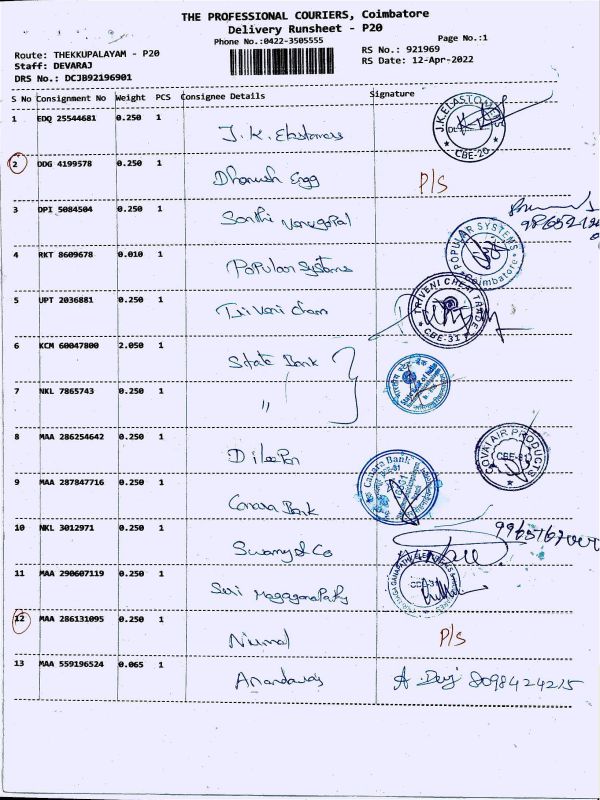 THE PROFESSIONAL COURIERS, Coimbatore
Delivery Runsheet - P20
Phone No.:0422-3505555
Page No.:1
Route: THEKKUPALAYAM - P20
RS No.: 921969
Staff: DEVARAJ
RS Date: 12-Apr-2022
DRS No.: DCJB92196901
S No Consignment No Weight PCS Consignee Details Signature
1 EDQ 25544681 0.250 1
J.K. Elastomers
J.K.ELASTOMERS
CBE-20
2 DDG 4199578 0.250 1
Dhanush Engg P/S
3 DPI 5084504 0.250 1
Santhi Venugopal
4 RKT 8609678 0.010 1
Popular Systems
POPULAR SYSTEMS
Coimbatore
5 UPT 2036881 0.250 1
Triveni Chem
TRIVENI CHEM TRADE
CBE-31
6 KCM 60047800 2.050 1
State Bank
7 NKL 7865743 0.250 1
"
8 MAA 286254642 0.250 1
AIR PRODUCTS
9 MAA 287847716 0.250 1
Canara Bank
Canara Bank
10 NKL 3012971 0.250 1
Swamy & Co
11 MAA 290607119 0.250 1
12 MAA 286131095 0.250 1
Nirmal P/S
13 MAA 559196524 0.065 1
Anandaraj 8098424215